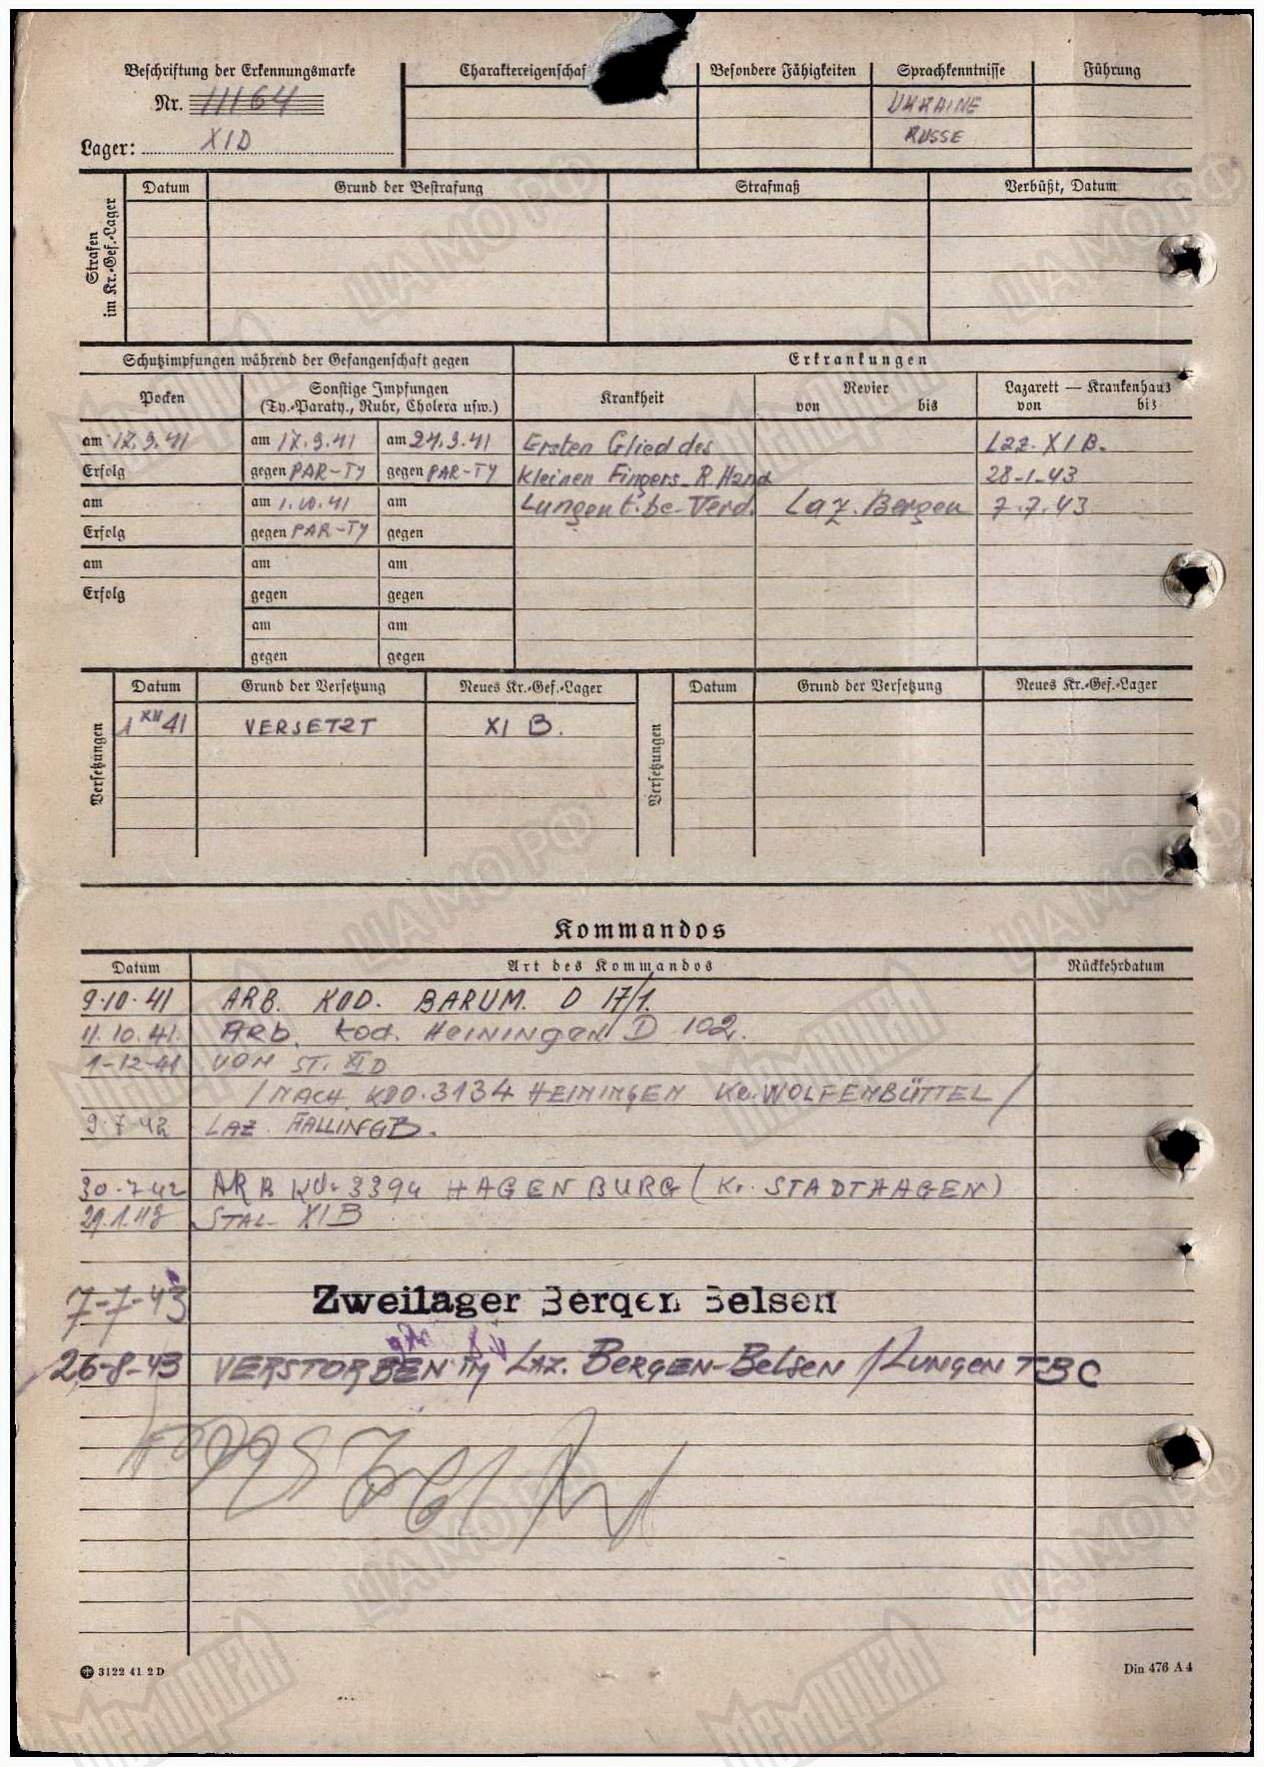 Beschriftung der Erkennungsmarke
Nr. 11164
Lager: XID
Charaktereigenschaf
Besondere Fähigkeiten
Sprachkenntnisse
Führung
UKRAINE
RUSSE
Strafen im Kr.-Gef.-Lager
Datum Grund der Bestrafung Strafmaß Verbüßt, Datum
Schutzimpfungen während der Gefangenschaft gegen
Erkrankungen
Pocken
Sonstige Impfungen
(Ty.-Paraty., Ruhr, Cholera usw.)
Krankheit
Revier
von bis
Lazarett — Krankenhaus
von bis
am 17.9.41 am 17.9.41 am 24.9.41 Ersten Glied des Laz. XI B.
Erfolg gegen PAR-TY gegen PAR-TY kleinen Fingers R. Hand 28-1-43
am am 1.10.41 am Lungen t.bc-Verd. Laz. Bergen 7.7.43
Erfolg gegen PAR-TY gegen
am am am
Erfolg gegen gegen
am am
gegen gegen
Versetzungen
Datum Grund der Versetzung Neues Kr.-Gef.-Lager
1 XII 41 VERSETZT XI B.
Versetzungen
Datum Grund der Versetzung Neues Kr.-Gef.-Lager
Kommandos
Datum Art des Kommandos Rückkehrdatum
9.10.41 ARB. KOD. BARUM. D 17/1.
11.10.41. ARb. kod. HEININGEN D 102.
1-12-41 VON ST. XI D
/NACH KDO. 3134 HEININGEN Kr. WOLFENBÜTTEL/
9.7.42 LAZ. FALLINGB.
30.7.42 ARB Kdo 3394 HAGENBURG (Kr. STADTHAGEN)
29.1.43 STAL- XI B
7-7-43 Zweilager Bergen Belsen
26-8-43 VERSTORBEN IM LAZ. BERGEN-BELSEN / LUNGEN TBC
3122 41 2 D
Din 476 A 4
ЦАМО РФ
Мемориал